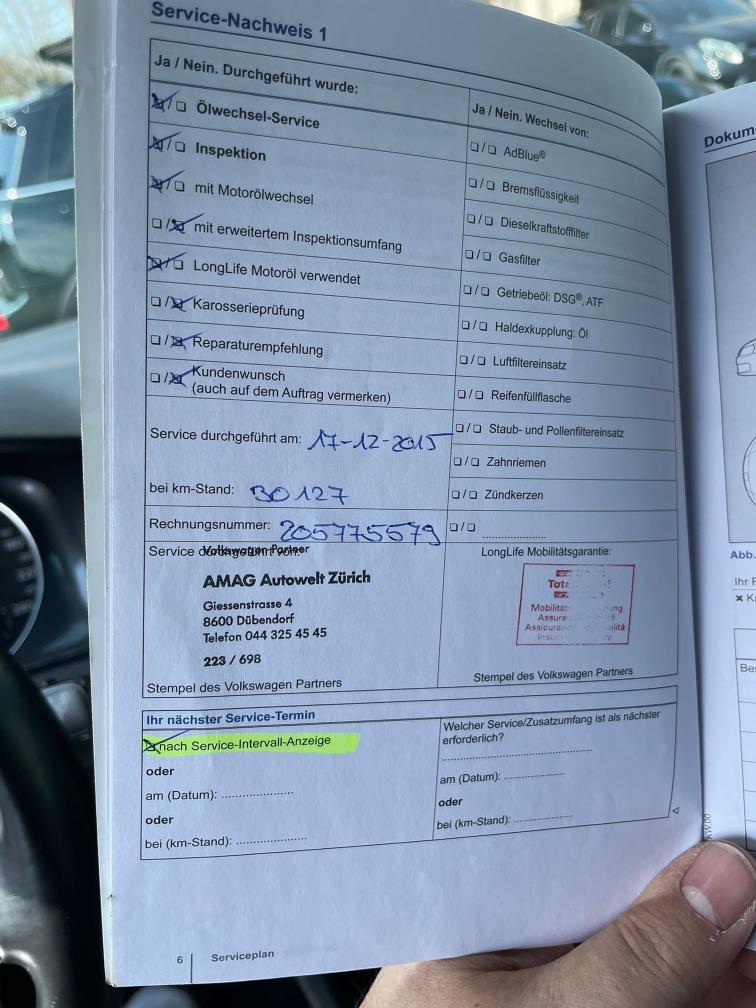 Service-Nachweis 1
Ja / Nein. Durchgeführt wurde:
☒/☐ Ölwechsel-Service
☒/☐ Inspektion
☒/☐ mit Motorölwechsel
☐/☒ mit erweitertem Inspektionsumfang
☒/☐ LongLife Motoröl verwendet
☐/☒ Karosserieprüfung
☐/☒ Reparaturempfehlung
☐/☒ Kundenwunsch
(auch auf dem Auftrag vermerken)
Service durchgeführt am: 17-12-2015
bei km-Stand: 30127
Rechnungsnummer: 205775579
Ja / Nein. Wechsel von:
☐/☐ AdBlue®
☐/☐ Bremsflüssigkeit
☐/☐ Dieselkraftstofffilter
☐/☐ Gasfilter
☐/☐ Getriebeöl: DSG®, ATF
☐/☐ Haldexkupplung: Öl
☐/☐ Luftfiltereinsatz
☐/☐ Reifenfüllflasche
☐/☐ Staub- und Pollenfiltereinsatz
☐/☐ Zahnriemen
☐/☐ Zündkerzen
☐/☐ ....................
Service durchgeführt von:
Volkswagen Partner
AMAG Autowelt Zürich
Giessenstrasse 4
8600 Dübendorf
Telefon 044 325 45 45
223 / 698
Stempel des Volkswagen Partners
LongLife Mobilitätsgarantie:
Stempel des Volkswagen Partners
Ihr nächster Service-Termin
☒ nach Service-Intervall-Anzeige
oder
am (Datum): ....................
oder
bei (km-Stand): ....................
Welcher Service/Zusatzumfang ist als nächster
erforderlich?
........................................
am (Datum): .................
oder
bei (km-Stand): .................
6 Serviceplan
Abb.